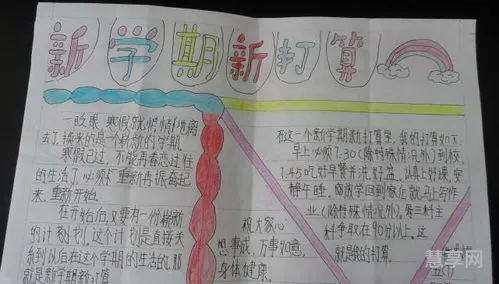 新学期新打算
一眨眼,寒假就悄悄地离
去了,换来的是个崭新的学期。
寒假已过,不能再眷恋过往
的生活了,必须重新再振奋起
来,重新开始。
在开始后,又要有一份崭新
的计划,这个计划是直接关
系到以后在这个学期的生活的。那
就是新学期新打算
祝大家心
想事成,万事如意,
身体健康。
在这一个新学期新打算里,我的打算如下
早上必须7.30(除特殊情况外)到校,
1.45吃好早餐并洗好盆,认真上好课,安
静午睡。晚放学回到家后就马上写作
业(除特殊情况外)。第三科主
科争取在90分以上。这
就是我的打算。
慧享网